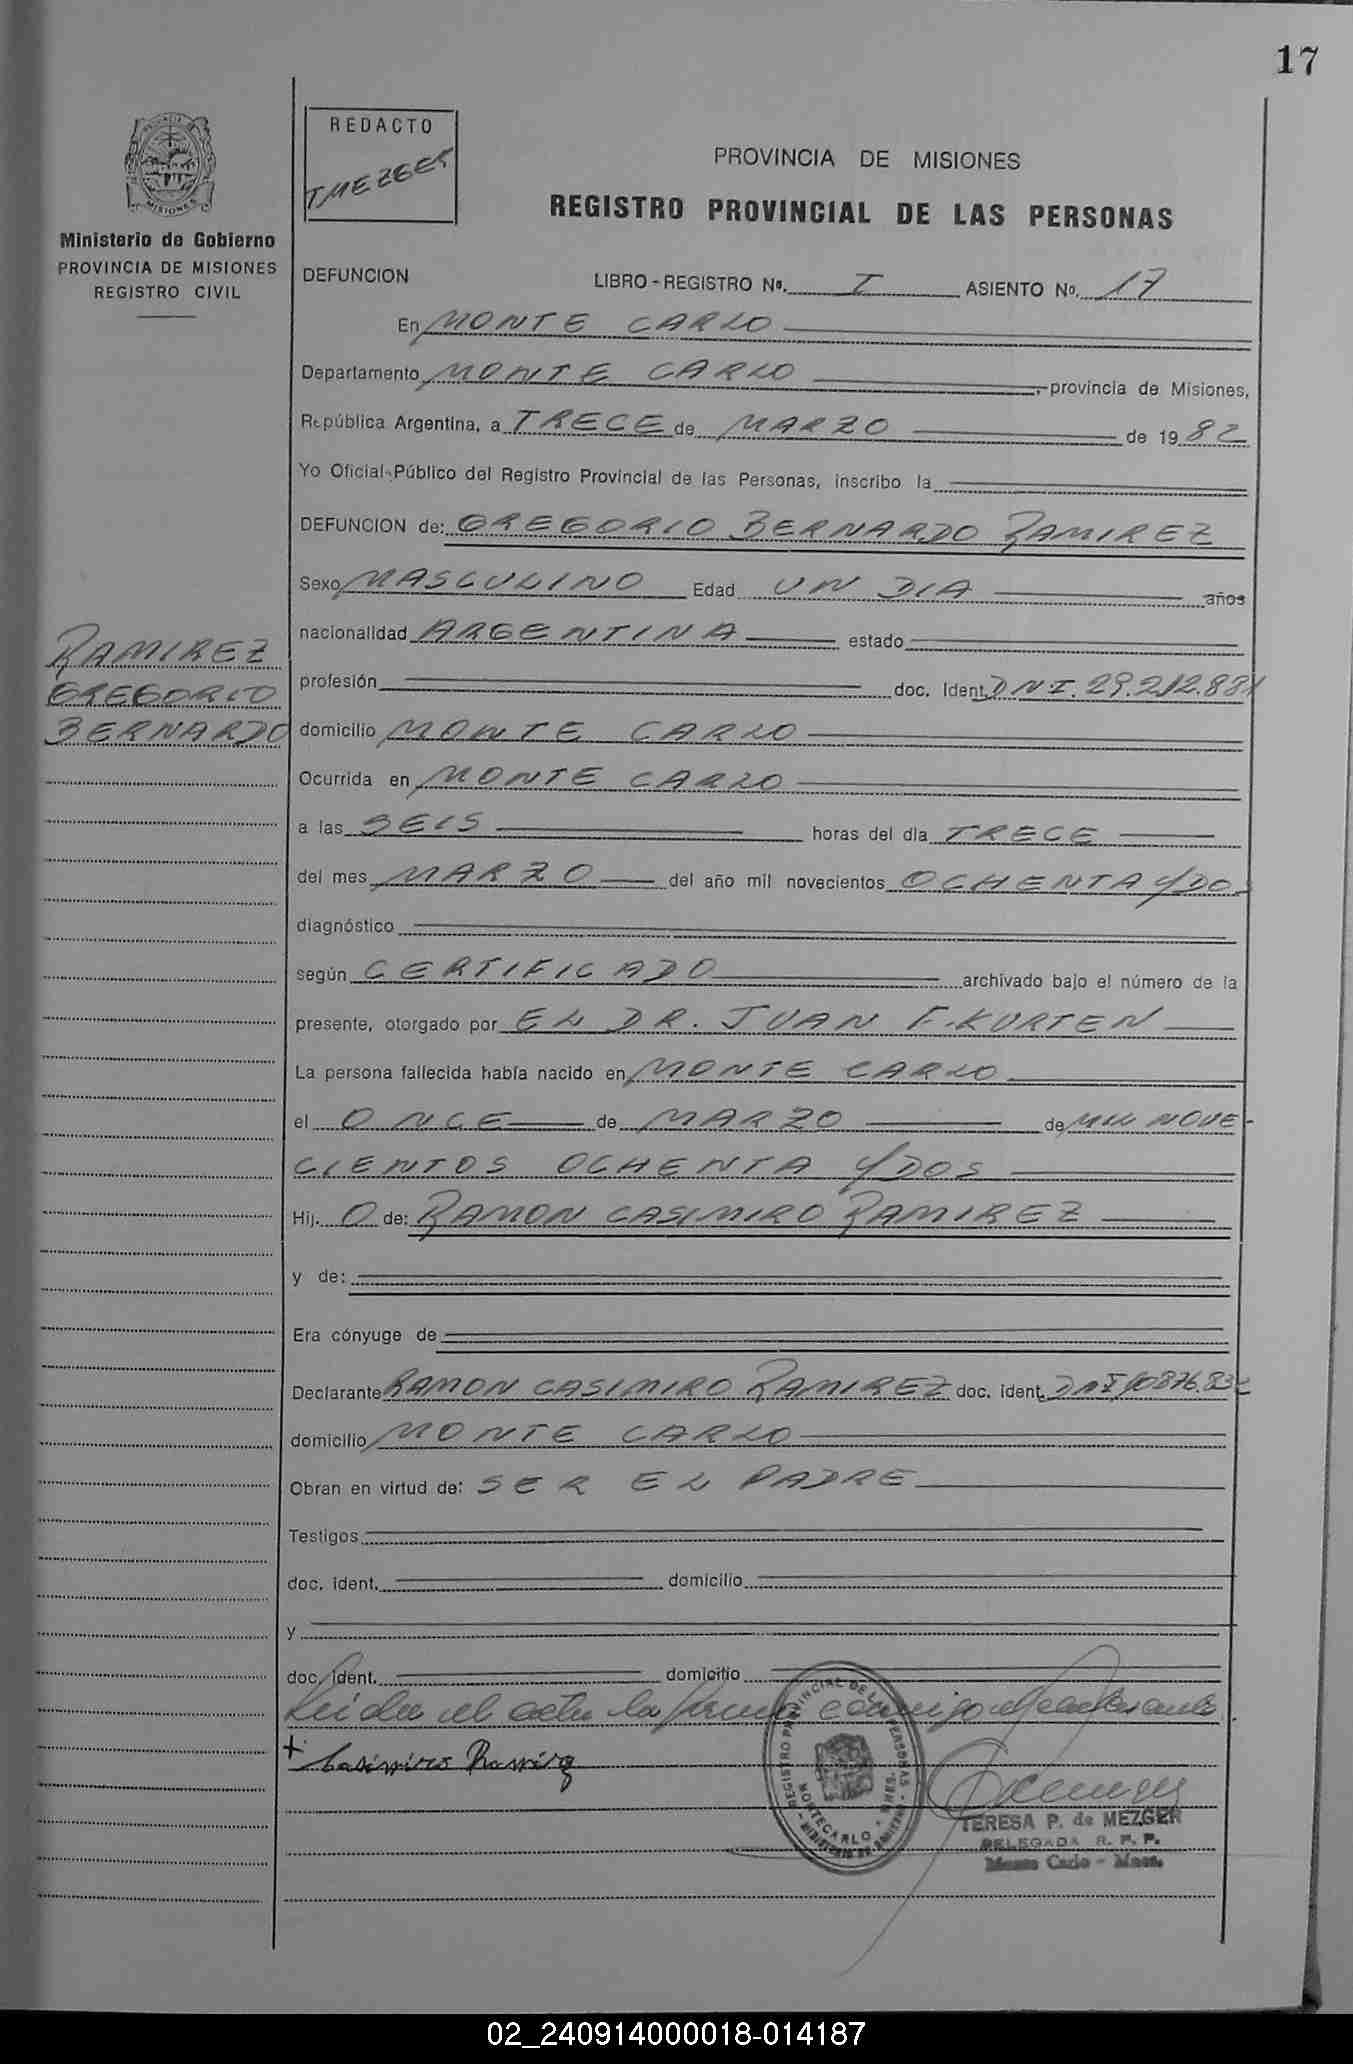 17
REDACTO
T MEZGER
PROVINCIA DE MISIONES
REGISTRO PROVINCIAL DE LAS PERSONAS
MISIONES
Ministerio de Gobierno
PROVINCIA DE MISIONES
REGISTRO CIVIL
DEFUNCION LIBRO - REGISTRO Nº. I ASIENTO Nº. 17
En MONTE CARLO
Departamento MONTE CARLO, provincia de Misiones,
República Argentina, a TRECE de MARZO de 1982
Yo Oficial Público del Registro Provincial de las Personas, inscribo la
DEFUNCION de: GREGORIO BERNARDO RAMIREZ
Sexo MASCULINO Edad UN DIA años
nacionalidad ARGENTINA estado
RAMIREZ
GREGORIO
BERNARDO
profesión doc. Ident. DNI. 29.212.881
domicilio MONTE CARLO
Ocurrida en MONTE CARLO
a las SEIS horas del día TRECE
del mes MARZO del año mil novecientos OCHENTA Y DOS
diagnóstico
según CERTIFICADO archivado bajo el número de la
presente, otorgado por EL DR. JUAN F. KURTEN
La persona fallecida había nacido en MONTE CARLO
el ONCE de MARZO de MIL NOVE-
CIENTOS OCHENTA Y DOS
Hij. O de: RAMON CASIMIRO RAMIREZ
y de:
Era cónyuge de
Declarante RAMON CASIMIRO RAMIREZ doc. ident. DNI 10876.832
domicilio MONTE CARLO
Obran en virtud de: SER EL PADRE
Testigos
doc. ident. domicilio
y
doc. ident. domicilio
Leida el acta la firma conmigo el declarante.
+ Casimiro Ramirez
REGISTRO PROVINCIAL DE LAS PERSONAS
MONTECARLO - MNES.
TERESA P. de MEZGER
DELEGADA R. P. P.
Monte Carlo - Mnes.
02_240914000018-014187